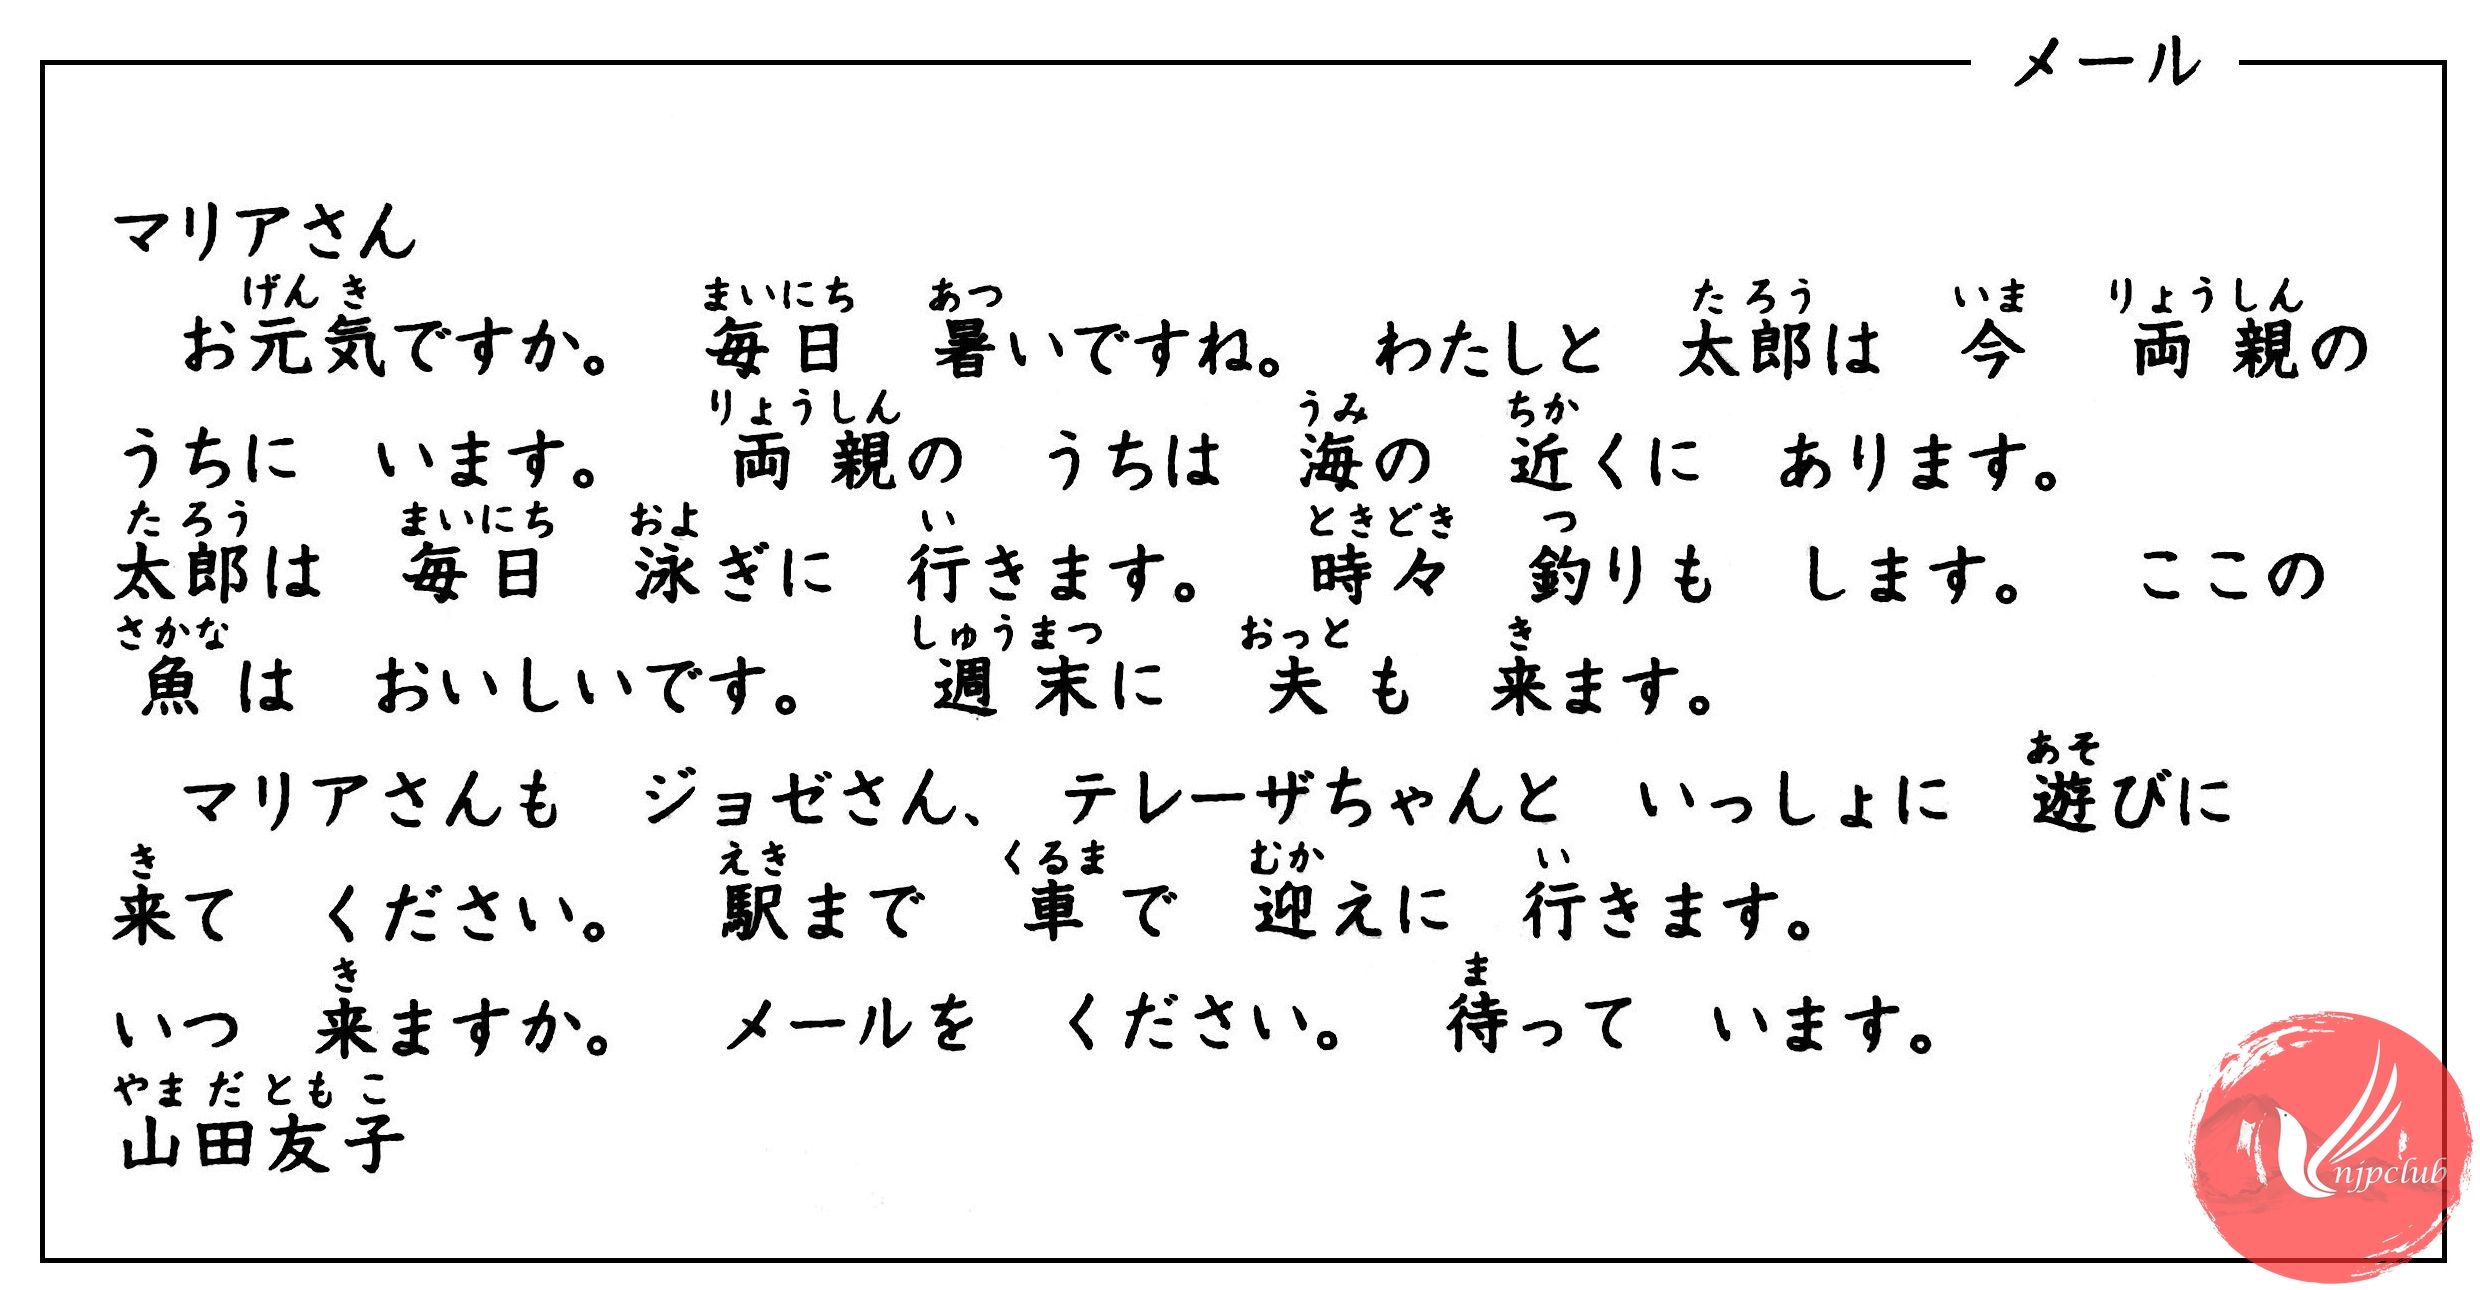 メール
マリアさん
げんき まいにち あつ たろう いま りょうしん
お元気ですか。 毎日 暑いですね。 わたしと 太郎は 今 両親の
りょうしん うみ ちか
うちに います。 両親の うちは 海の 近くに あります。
たろう まいにち およ い ときどき つ
太郎は 毎日 泳ぎに 行きます。 時々 釣りも します。 ここの
さかな しゅうまつ おっと き
魚は おいしいです。 週末に 夫も 来ます。
あそ
マリアさんも ジョゼさん、 テレーザちゃんと いっしょに 遊びに
き えき くるま むか い
来て ください。 駅まで 車で 迎えに 行きます。
き ま
いつ 来ますか。 メールを ください。 待って います。
やまだともこ
山田友子
njpclub